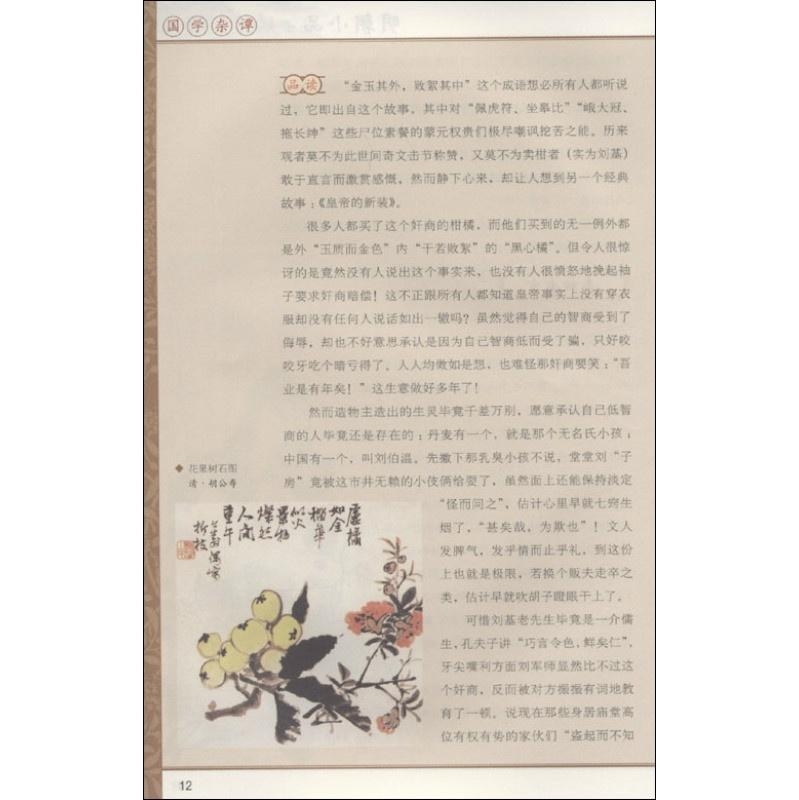 国学杂谭
品读 “金玉其外，败絮其中”这个成语想必所有人都听说
过，它即出自这个故事，其中对“佩虎符、坐皋比”“峨大冠、
拖长绅”这些尸位素餐的蒙元权贵们极尽嘲讽挖苦之能。历来
观者莫不为此世间奇文击节称赞，又莫不为卖柑者（实为刘基）
敢于直言而激赏感慨，然而静下心来，却让人想到另一个经典
故事：《皇帝的新装》。
很多人都买了这个奸商的柑橘，而他们买到的无一例外都
是外“玉质而金色”内“干若败絮”的“黑心橘”。但令人很惊
讶的是竟然没有人说出这个事实来，也没有人很愤怒地挽起袖
子要求奸商赔偿！这不正跟所有人都知道皇帝事实上没有穿衣
服却没有任何人说话如出一辙吗？虽然觉得自己的智商受到了
侮辱，却也不好意思承认是因为自己智商低而受了骗，只好咬
咬牙吃个暗亏得了。人人均做如是想，也难怪那奸商要笑：“吾
业是有年矣！”这生意做好多年了！
然而造物主造出的生灵毕竟千差万别，愿意承认自己低智
商的人毕竟还是存在的：丹麦有一个，就是那个无名氏小孩；
中国有一个，叫刘伯温。先撇下那乳臭小孩不说，堂堂刘“子
房”竟被这市井无赖的小伎俩给耍了，虽然面上还能保持淡定
“怪而问之”，估计心里早就七窍生
烟了，“甚矣哉，为欺也”！文人
发脾气，发乎情而止乎礼，到这份
上也就是极限，若换个贩夫走卒之
类，估计早就吹胡子瞪眼干上了。
可惜刘基老先生毕竟是一介儒
生，孔夫子讲“巧言令色，鲜矣仁”，
牙尖嘴利方面刘军师显然比不过这
个奸商，反而被对方振振有词地教
育了一顿。说现在那些身居庙堂高
位有权有势的家伙们“盗起而不知
◆ 花果树石图
清·胡公寿
卢橘
如金
榴华
似火
景物
灿然
人间
重午
12